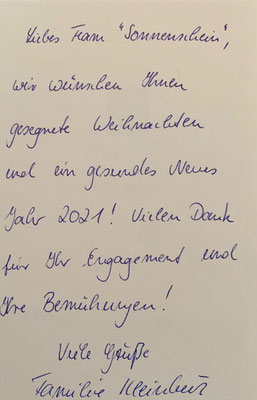 Liebes Team "Sonnenschein",
wir wünschen Ihnen
gesegnete Weihnachten
und ein gesundes Neues
Jahr 2021! Vielen Dank
für Ihr Engagement und
Ihre Bemühungen!
Viele Grüße
Familie